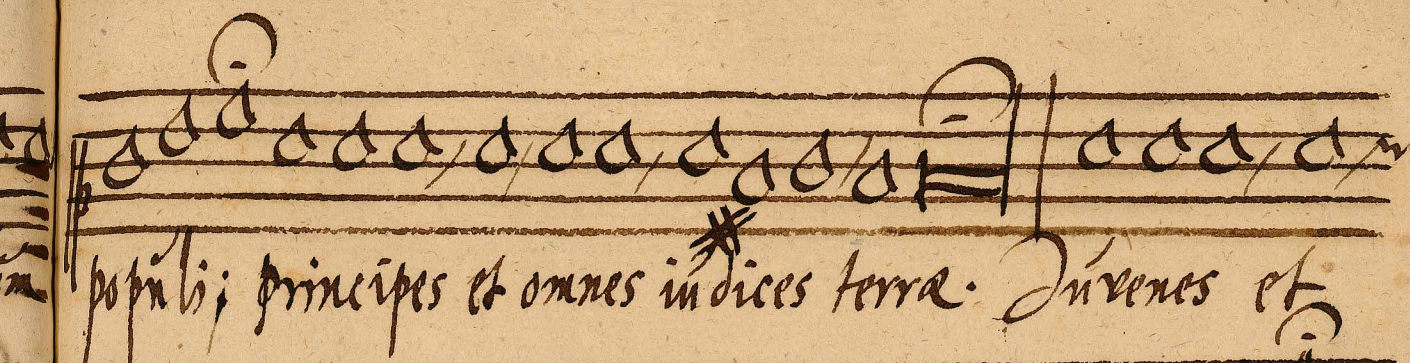 populi; principes et omnes iudices terræ. Juvenes et